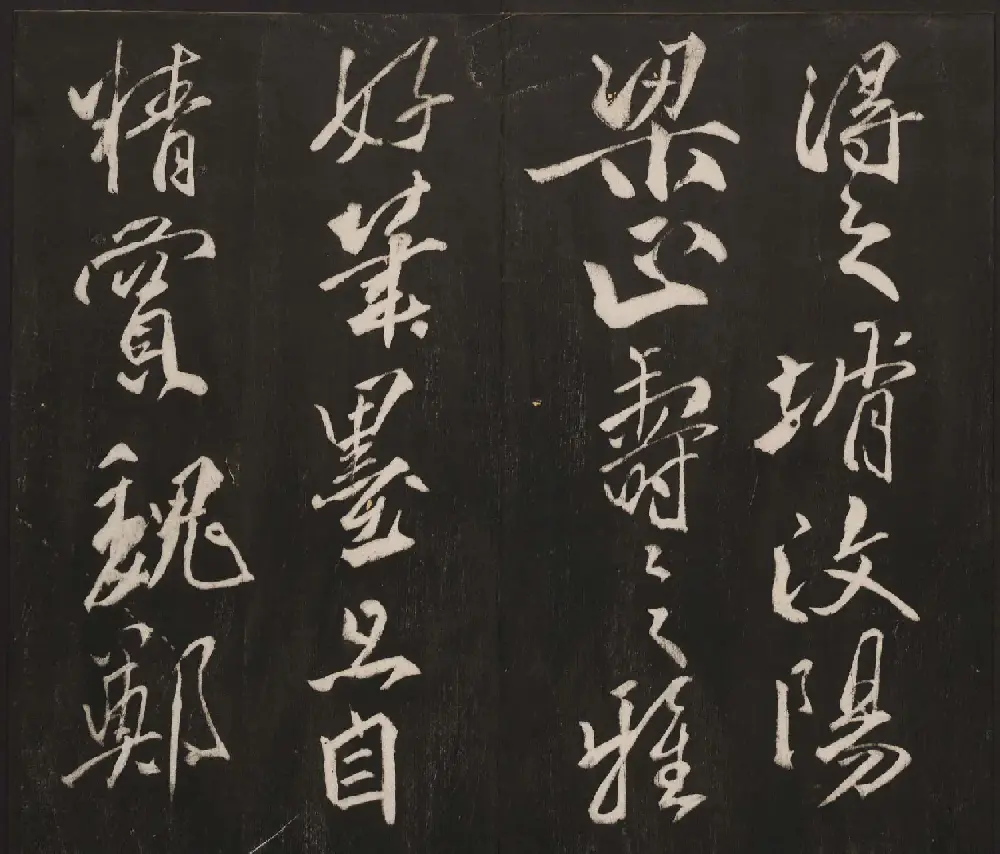 得之壻汶陽
梁正壽〻之雅
好筆墨且自
精賞魏鄭